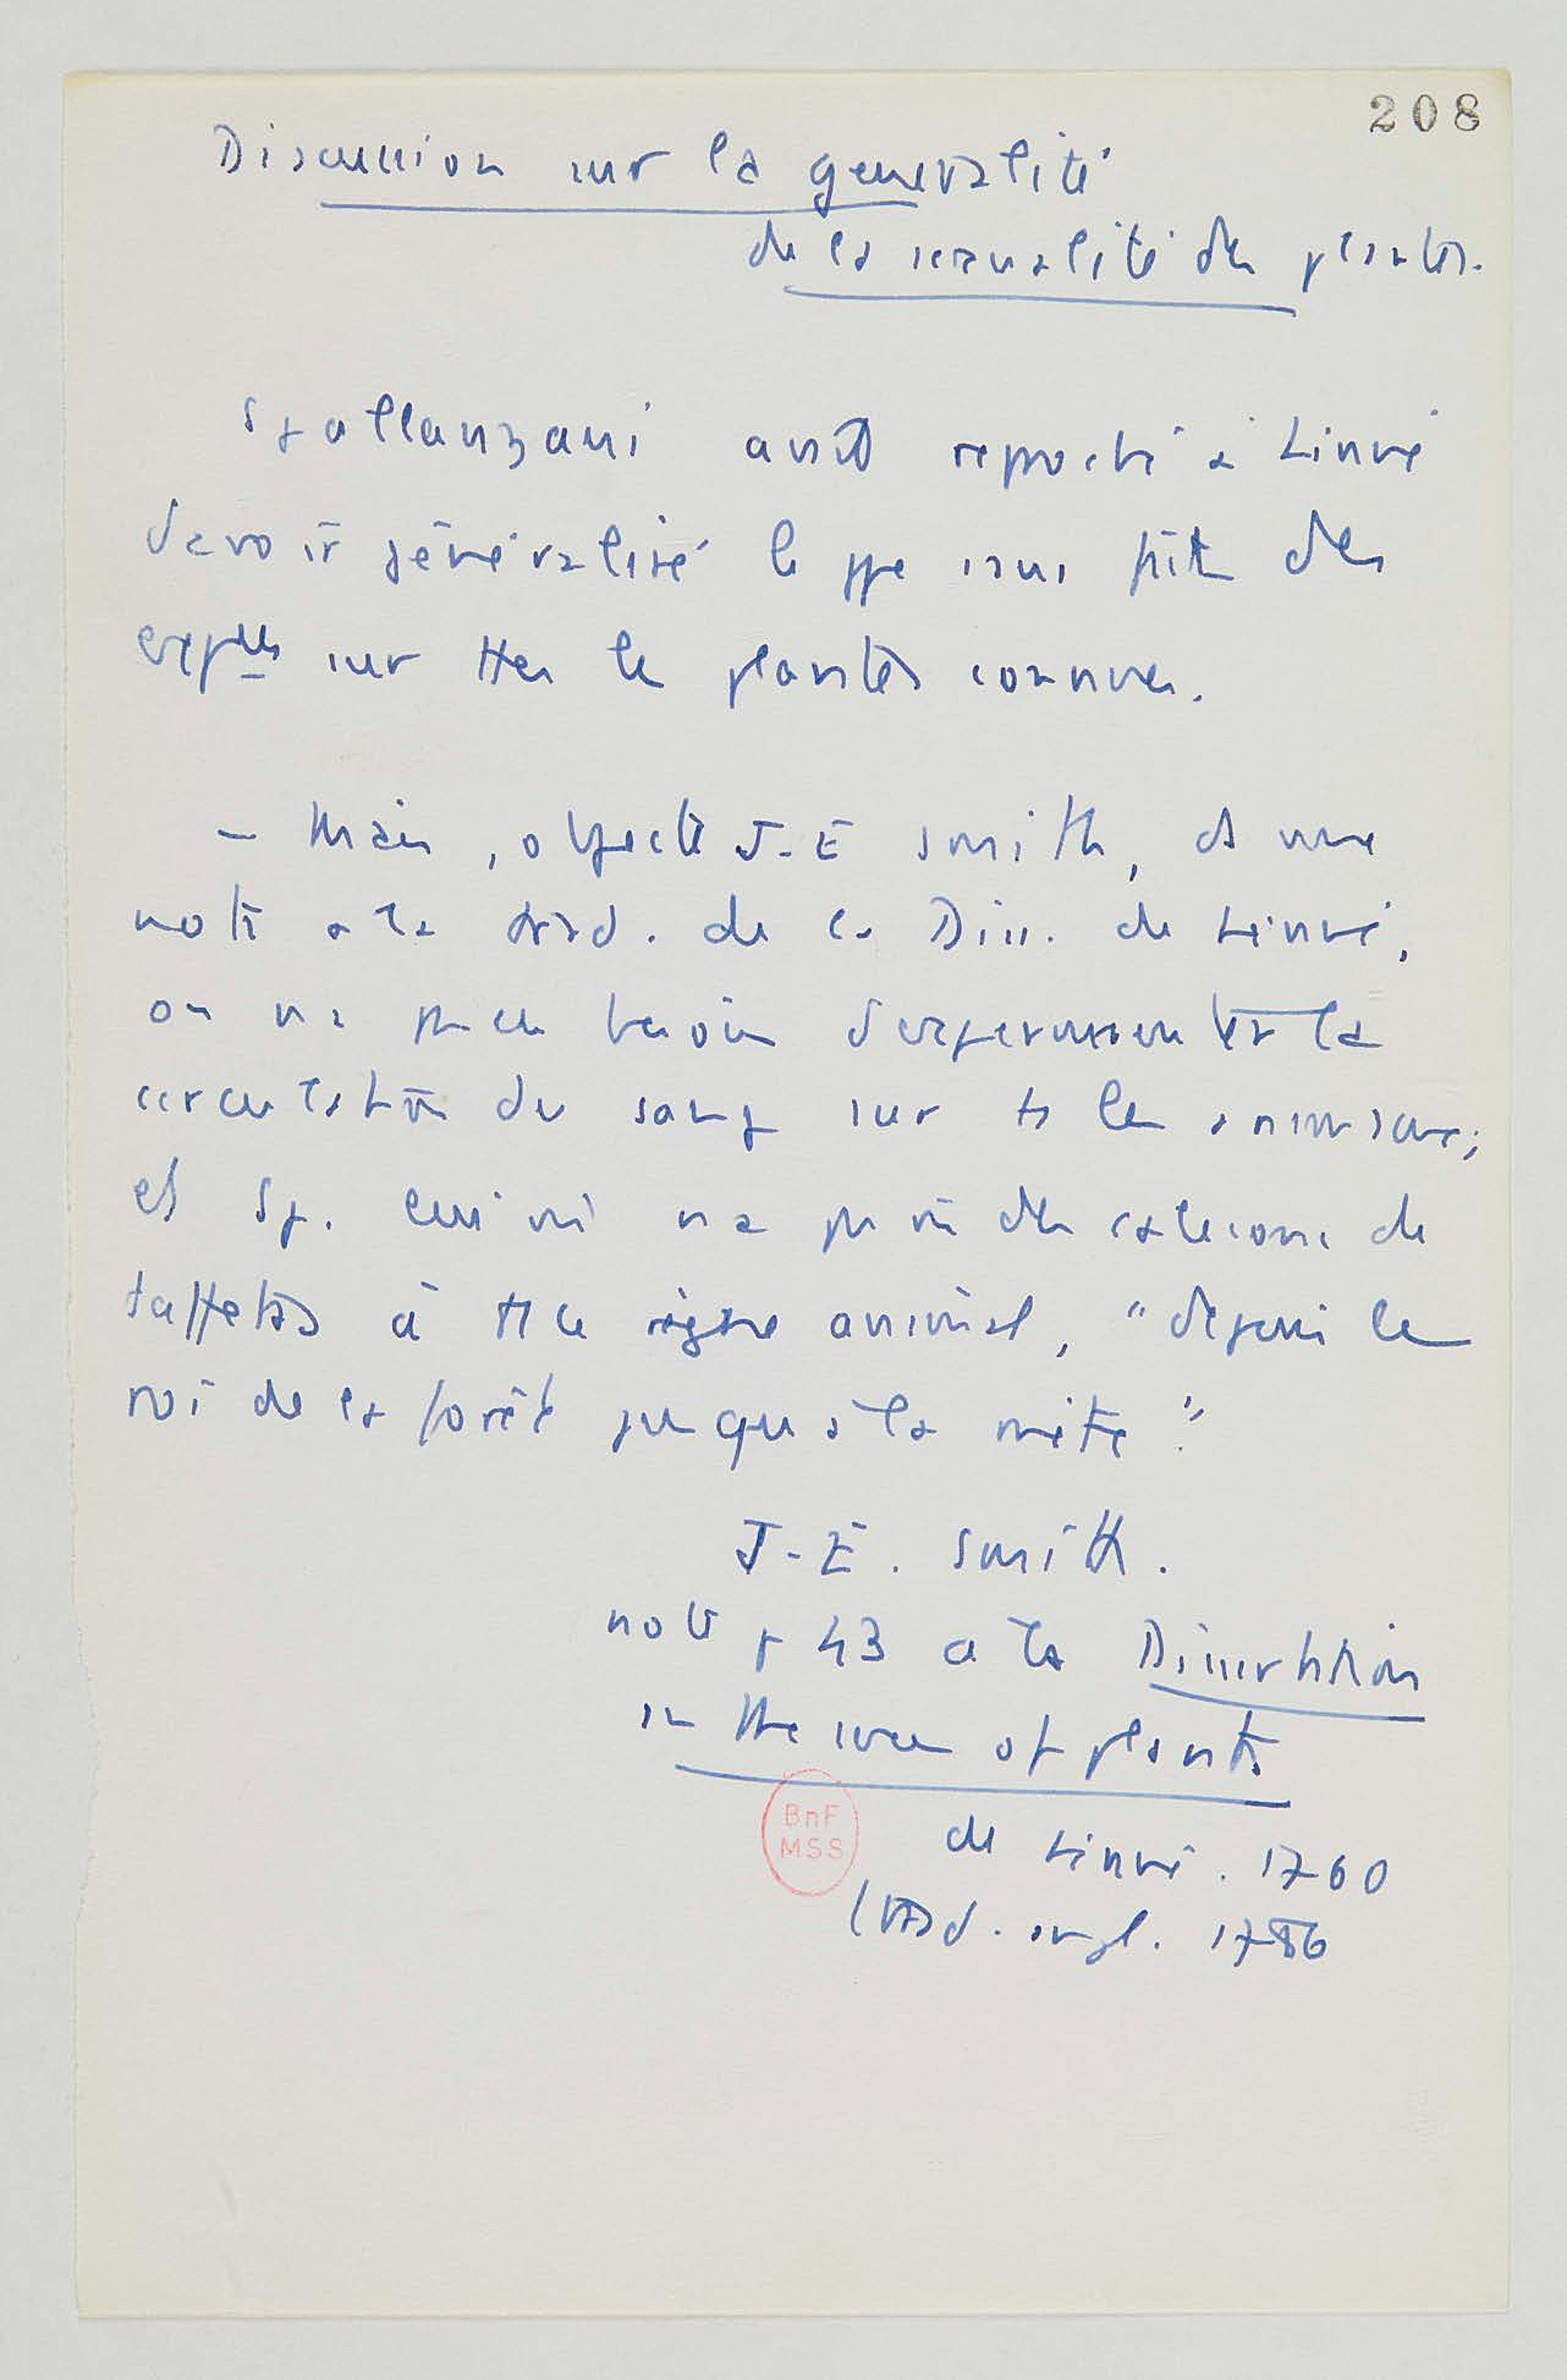 208
Discussion sur la generalité
de la sexualité des plantes.
Spallanzani avait reproché à Linné
d'avoir généralisé le ppe sans faire des
expces sur ttes les plantes connues.
– Mais, objecte J-E Smith, ds une
note a la trad. de la Diss. de Linné,
on n'a pas eu besoin d'experimenter la
circulation du sang sur ts les animaux;
et Sp. lui même n'a pas mis des calecons de
taffetas à tt le règne animal, "depuis le
roi de la forêt jusqu'a la mite".
J-E. Smith.
note p 43 a la Dissertation
on the sexes of plants
de Linné. 1760
(trad. angl. 1786
BnF
MSS